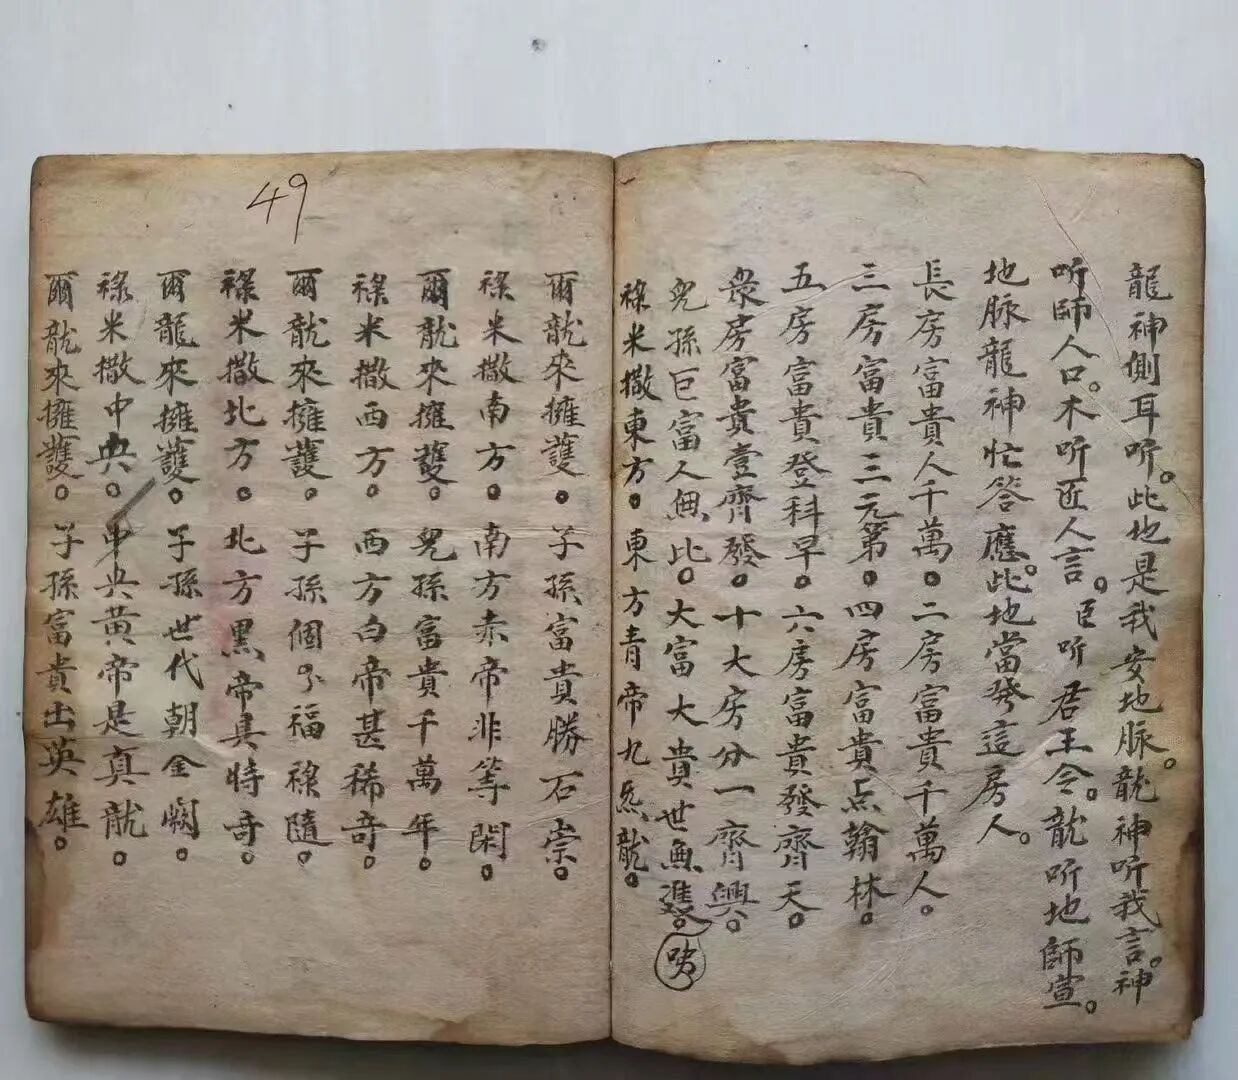 龍神側耳听。此地是我安地脉。龍神听我言。神
听師人口。木听匠人言。臣听君王令。龍听地師宣。
地脉龍神忙答應。此地當發這房人。
長房富貴人千萬。二房富貴千萬人。
三房富貴三元第。四房富貴点翰林。
五房富貴登科早。六房富貴發齊天。
衆房富貴壹齊發。十大房分一齊興。
兒孫巨富人無比。大富大貴世無邊。
祿米撒東方。東方青帝九炁龍。
49
爾龍來擁護。子孫富貴勝石崇。
祿米撒南方。南方赤帝非等閑。
爾龍來擁護。兒孫富貴千萬年。
祿米撒西方。西方白帝甚稀奇。
爾龍來擁護。子孫個个福祿隨。
祿米撒北方。北方黑帝具時奇。
爾龍來擁護。子孫世代朝金闕。
祿米撒中央。中央黃帝是真龍。
爾龍來擁護。子孫富貴出英雄。